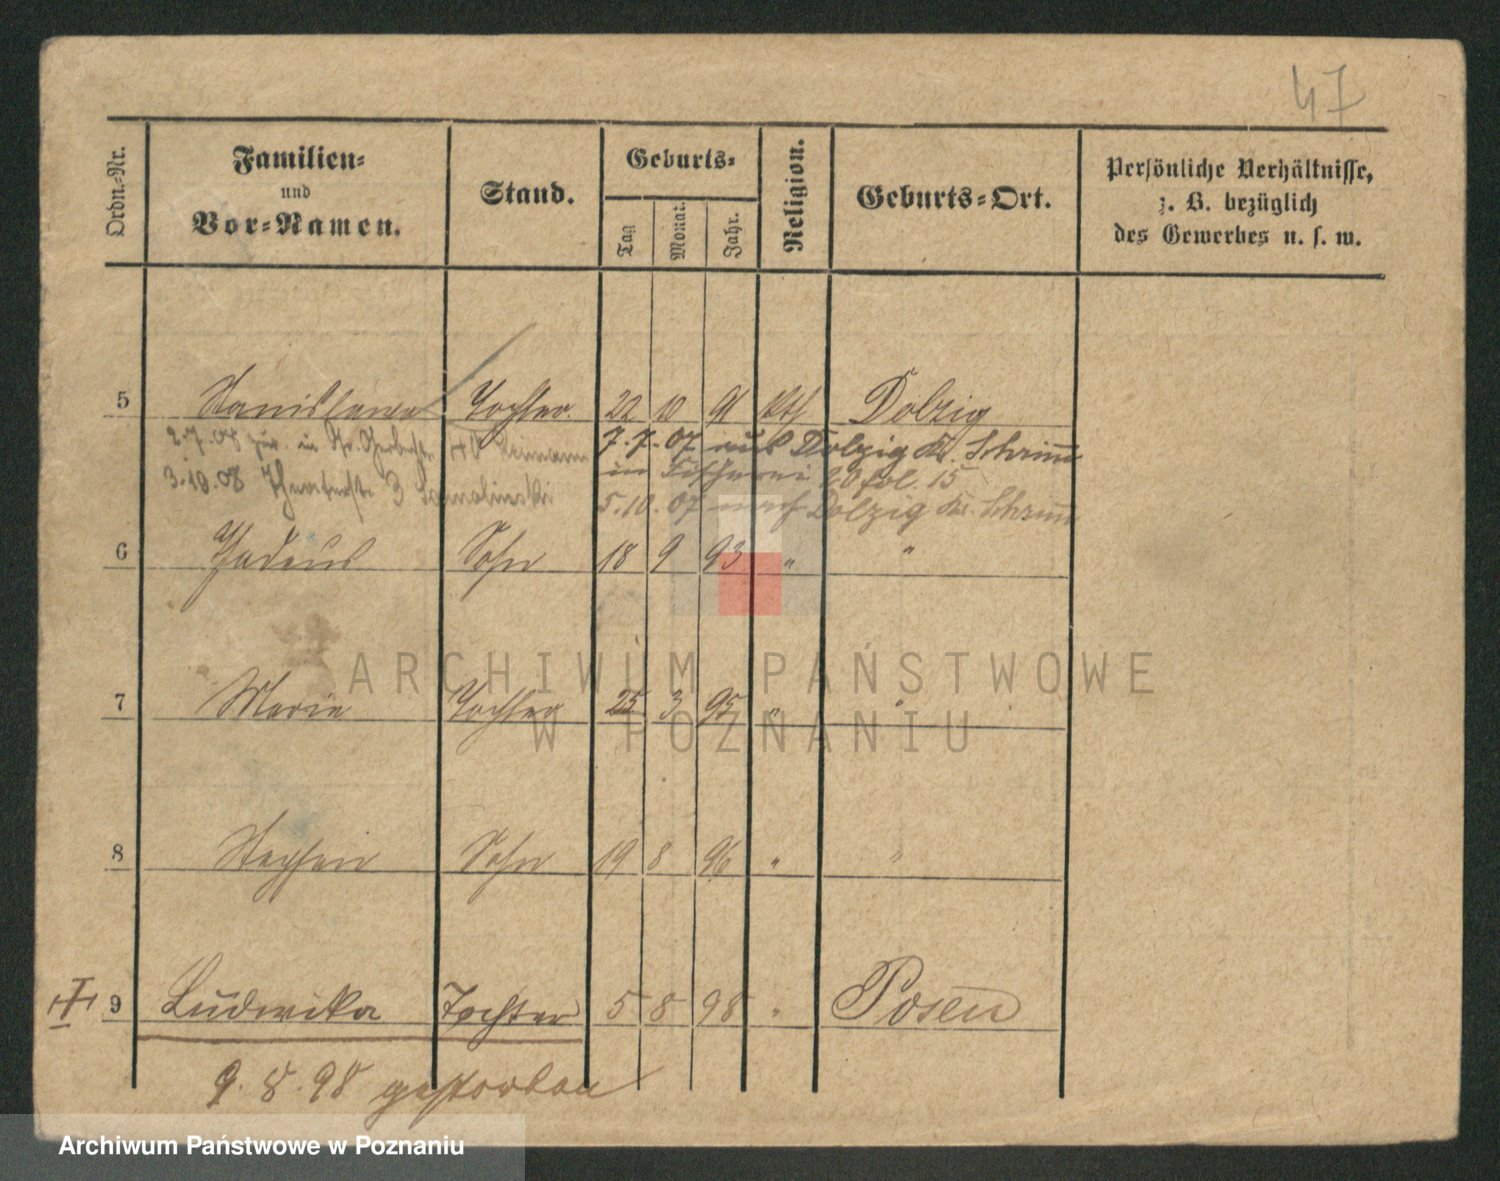 47
Ordn.-Nr.
Familien-
und
Vor-Namen.
Stand.
Geburts-
Tag
Monat.
Jahr.
Religion.
Geburts-Ort.
Persönliche Verhältnisse,
z. B. bezüglich
des Gewerbes u. s. w.
5 Stanislawa Tochter. 22 10 91 kth Dolzig
2.7.07 zur. in
7.7.07 aus Dolzig Kr. Schrimm
in Fischerei 20 fol. 15
3.10.08 Theaterstr. 3
5.10.07 nach Dolzig Kr. Schrimm
6 Thadeus Sohn 18 9 93 " "
ARCHIWUM PAŃSTWOWE
7 Marie Tochter 25 3 95 " "
W POZNANIU
8 Stephan Sohn 19 8 96 " "
9 Ludwika Tochter 5 8 98 " Posen
9.8.98 gestorben
Archiwum Państwowe w Poznaniu